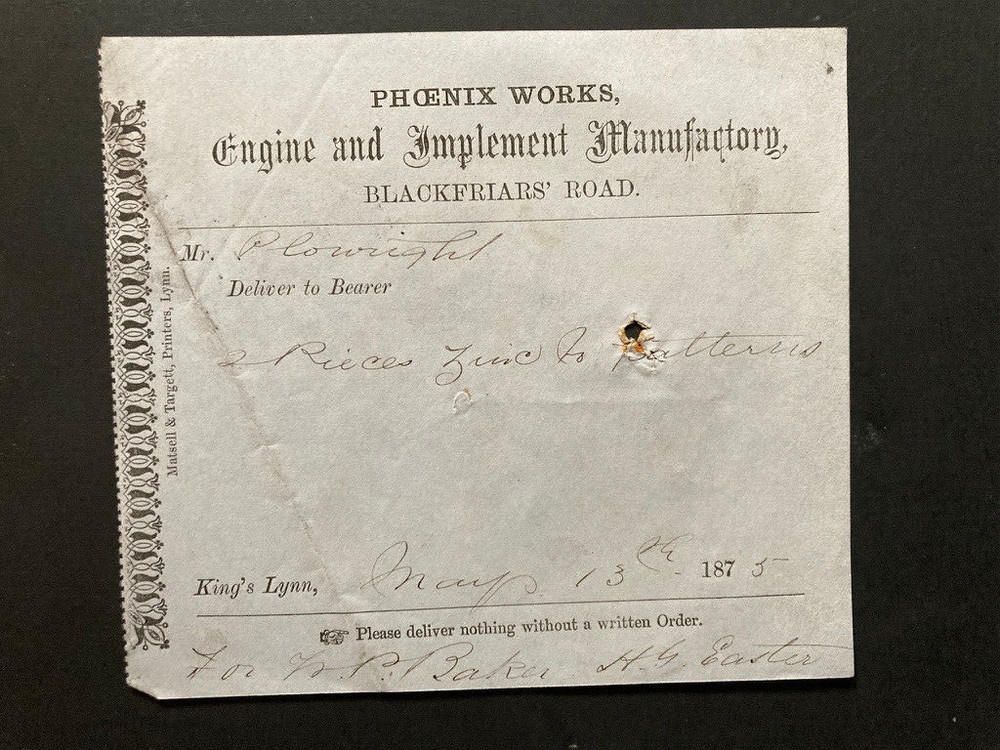 PHŒNIX WORKS,
Engine and Implement Manufactory,
BLACKFRIARS' ROAD.
Mr. Plowright
Deliver to Bearer
2 Pieces Zinc to Patterns
King's Lynn, May 13th 1875
☞ Please deliver nothing without a written Order.
For W. P. Baker H. G. Easter
Matsell & Targett, Printers, Lynn.